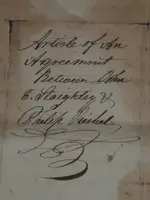 Article of An
Agreement
Between John
E. Slaighter &
Philip